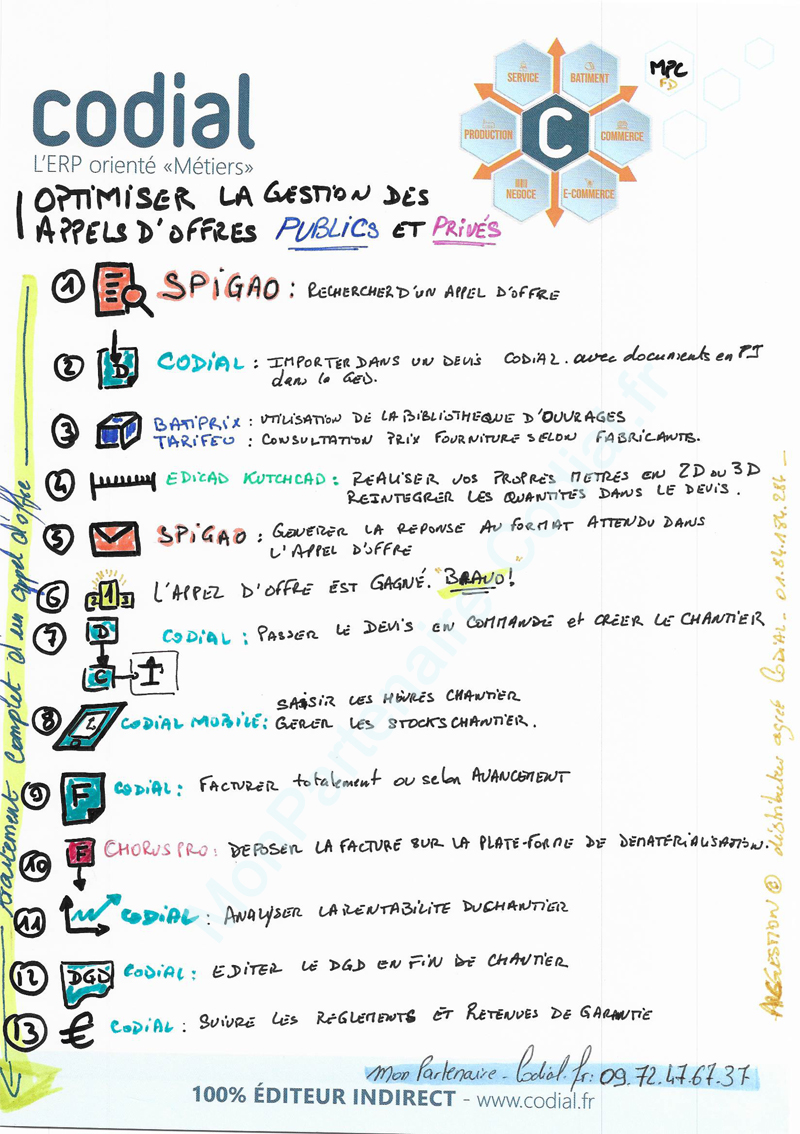 codial
L'ERP orienté «Métiers»
SERVICE
BATIMENT
PRODUCTION
C
COMMERCE
NEGOCE
E-COMMERCE
MPC
FD
OPTIMISER LA GESTION DES
APPELS D'OFFRES PUBLICS ET PRIVÉS
1 SPIGAO : RECHERCHER D'UN APPEL D'OFFRE
2 D CODIAL : IMPORTER DANS UN DEVIS CODIAL. avec documents en PJ
dans la GED.
3 BATIPRIX : UTILISATION DE LA BIBLIOTHEQUE D'OUVRAGES
TARIFEO : CONSULTATION PRIX FOURNITURE SELON FABRICANTS.
4 EDICAD KUTCHCAD : REALISER VOS PROPRES METRES EN 2D OU 3D
REINTEGRER LES QUANTITES DANS LE DEVIS.
5 SPIGAO : GENERER LA REPONSE AU FORMAT ATTENDU DANS
L'APPEL D'OFFRE
6 2 1 3 L'APPEL D'OFFRE EST GAGNÉ. "BRAVO!"
7 D CODIAL : PASSER LE DEVIS EN COMMANDE et CRÉER LE CHANTIER
C
SAISIR LES HEURES CHANTIER
8 CODIAL MOBILE : GERER LES STOCKS CHANTIER.
9 F CODIAL : FACTURER totalement ou selon AVANCEMENT
10 F CHORUS PRO : DEPOSER LA FACTURE SUR LA PLATE-FORME DE DEMATERIALISATION.
11 CODIAL : ANALYSER LA RENTABILITE DU CHANTIER
12 DGD CODIAL : EDITER LE DGD EN FIN DE CHANTIER
13 € CODIAL : SUIVRE LES REGLEMENTS ET RETENUES DE GARANTIE
traitement complet d'un appel d'offre
ARGGESTION © distributeur agréé CODIAL - 01.84.184.284 -
MonPartenaire-Codial.fr
Mon Partenaire - Codial.fr : 09.72.47.67.37
100% ÉDITEUR INDIRECT - www.codial.fr